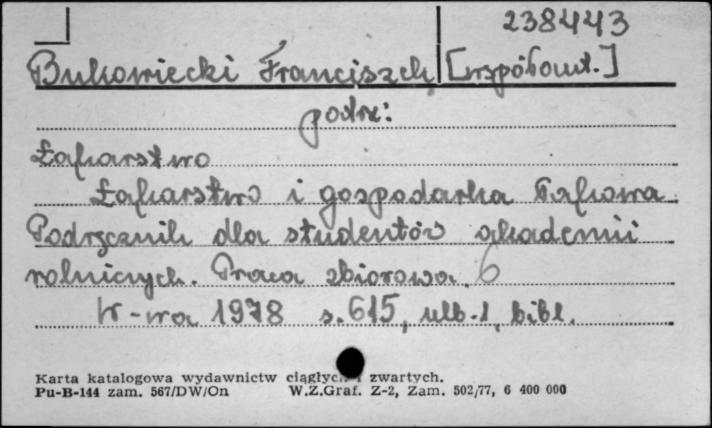 238443
Bukowiecki Franciszek [współaut.]
podrz:
Łąkarstwo
Łąkarstwo i gospodarka łąkowa
Podręcznik dla studentów akademii
rolniczych. Praca zbiorowa. 6
W-wa 1978 s. 615, ulb. 1, bibl.
Karta katalogowa wydawnictw ciągłych i zwartych.
Pu-B-144 zam. 567/DW/On W.Z.Graf. Z-2, Zam. 502/77, 6 400 000